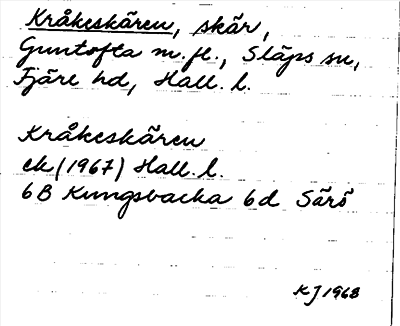 Kråkeskären, skär,
Guntofta m.fl., Släps sn,
Fjäre hd, Hall. l.
Kråkeskären
ek (1967) Hall. l.
6B Kungsbacka 6d Särö
KJ 1968